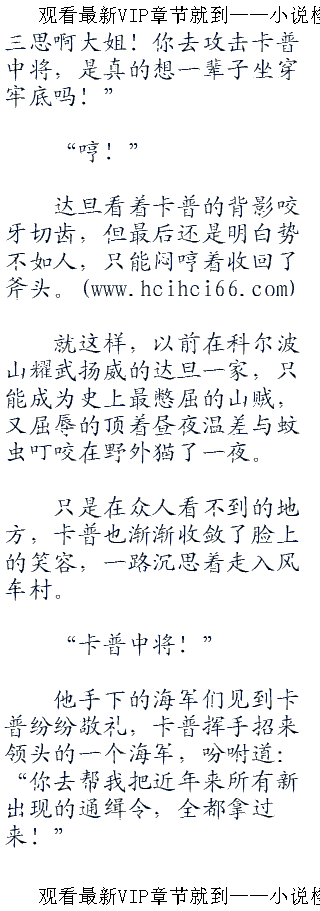 观看最新VIP章节就到——小说检
三思啊大姐！你去攻击卡普
中将，是真的想一辈子坐穿
牢底吗！”
“哼！”
达旦看着卡普的背影咬
牙切齿，但最后还是明白势
不如人，只能闷哼着收回了
斧头。(www.hcihci66.com)
就这样，以前在科尔波
山耀武扬威的达旦一家，只
能成为史上最憋屈的山贼，
又屈辱的顶着昼夜温差与蚊
虫叮咬在野外猫了一夜。
只是在众人看不到的地
方，卡普也渐渐收敛了脸上
的笑容，一路沉思着走入风
车村。
“卡普中将！”
他手下的海军们见到卡
普纷纷敬礼，卡普挥手招来
领头的一个海军，吩咐道：
“你去帮我把近年来所有新
出现的通缉令，全都拿过
来！”
观看最新VIP章节就到——小说检